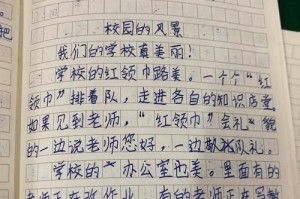 校园的风景
我们的学校真美丽！
学校的红领巾路美。一个个“红
领巾”排着队，走进各自的知识店堂
如果见到老师，“红领巾”会礼貌
的一边说老师您好，一边敬队礼。
学校的办公室也美。里面有的
老师正在改作业，有的老师正在写教
把